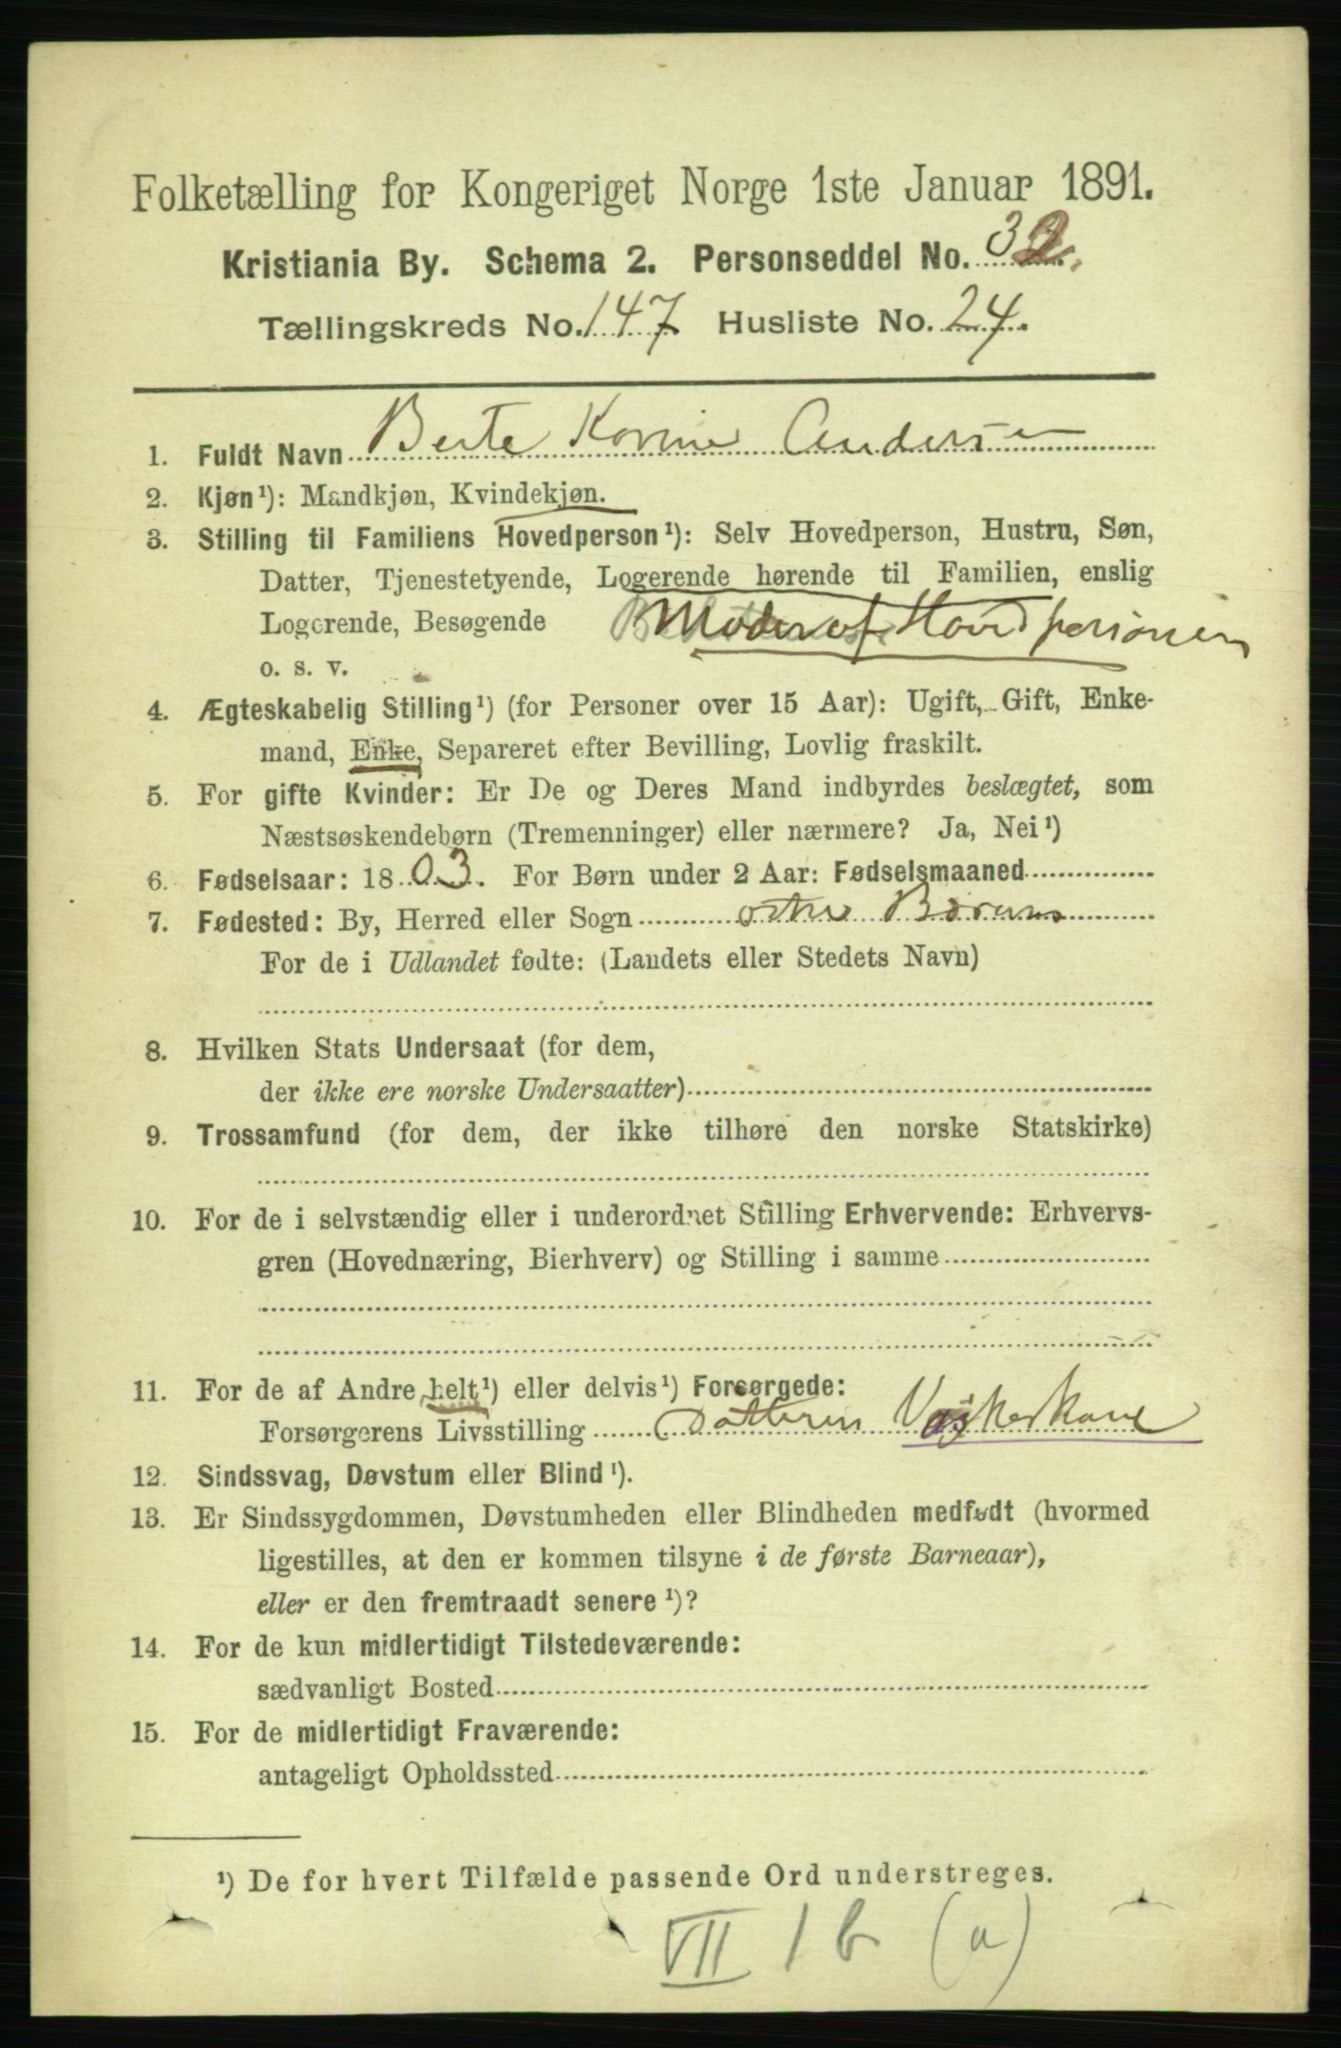 Folketælling for Kongeriget Norge 1ste Januar 1891.
Kristiania By. Schema 2. Personseddel No. 32.
Tællingskreds No. 147 Husliste No. 24.
1. Fuldt Navn Berte Korine Andersen
2. Kjøn¹): Mandkjøn, Kvindekjøn.
3. Stilling til Familiens Hovedperson¹): Selv Hovedperson, Hustru, Søn,
Datter, Tjenestetyende, Logerende hørende til Familien, enslig
Logerende, Besøgende Moder af Hovedpersonen
o. s. v.
4. Ægteskabelig Stilling¹) (for Personer over 15 Aar): Ugift, Gift, Enke-
mand, Enke, Separeret efter Bevilling, Lovlig fraskilt.
5. For gifte Kvinder: Er De og Deres Mand indbyrdes beslægtet, som
Næstsøskendebørn (Tremenninger) eller nærmere? Ja, Nei¹)
6. Fødselsaar: 1803. For Børn under 2 Aar: Fødselsmaaned
7. Fødested: By, Herred eller Sogn østre Bærum
For de i Udlandet fødte: (Landets eller Stedets Navn)
8. Hvilken Stats Undersaat (for dem,
der ikke ere norske Undersaatter)
9. Trossamfund (for dem, der ikke tilhøre den norske Statskirke)
10. For de i selvstændig eller i underordnet Stilling Erhvervende: Erhvervs-
gren (Hovednæring, Bierhverv) og Stilling i samme
11. For de af Andre helt¹) eller delvis¹) Forsørgede:
Forsørgerens Livsstilling Datteren Vaskerkone
12. Sindssvag, Døvstum eller Blind¹).
13. Er Sindssygdommen, Døvstumheden eller Blindheden medfødt (hvormed
ligestilles, at den er kommen tilsyne i de første Barneaar),
eller er den fremtraadt senere¹)?
14. For de kun midlertidigt Tilstedeværende:
sædvanligt Bosted
15. For de midlertidigt Fraværende:
antageligt Opholdssted
¹) De for hvert Tilfælde passende Ord understreges.
VII 1 b (a)